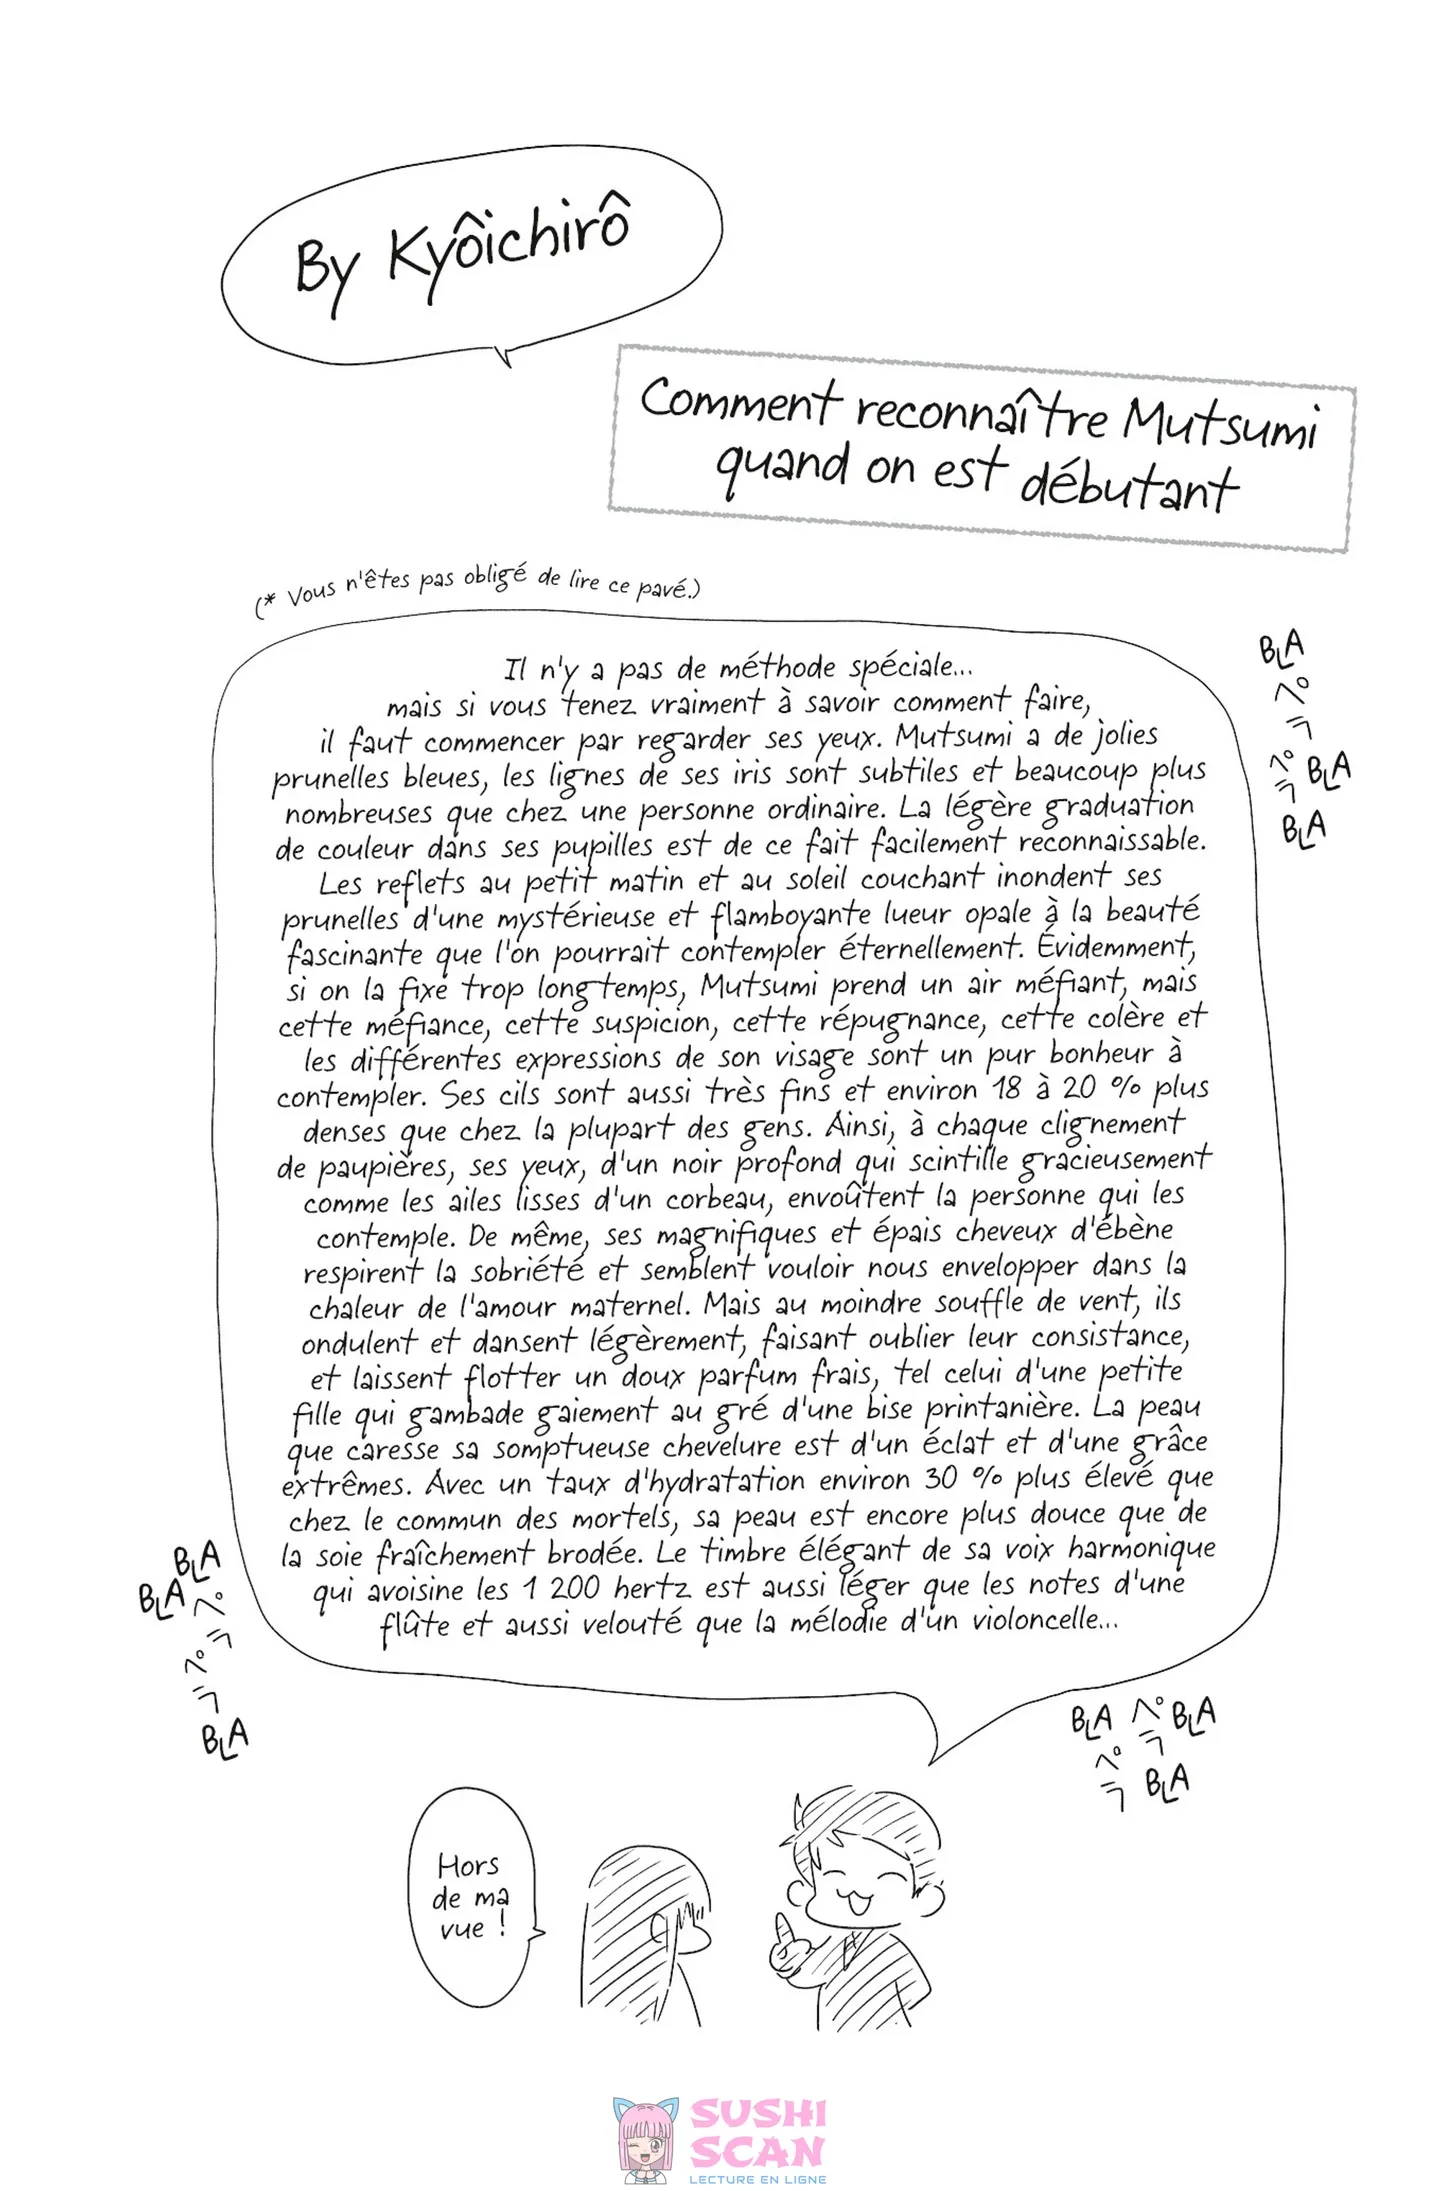 By Kyôichirô
Comment reconnaître Mutsumi
quand on est débutant
(* Vous n'êtes pas obligé de lire ce pavé.)
Il n'y a pas de méthode spéciale...
mais si vous tenez vraiment à savoir comment faire,
il faut commencer par regarder ses yeux. Mutsumi a de jolies
prunelles bleues, les lignes de ses iris sont subtiles et beaucoup plus
nombreuses que chez une personne ordinaire. La légère graduation
de couleur dans ses pupilles est de ce fait facilement reconnaissable.
Les reflets au petit matin et au soleil couchant inondent ses
prunelles d'une mystérieuse et flamboyante lueur opale à la beauté
fascinante que l'on pourrait contempler éternellement. Évidemment,
si on la fixe trop longtemps, Mutsumi prend un air méfiant, mais
cette méfiance, cette suspicion, cette répugnance, cette colère et
les différentes expressions de son visage sont un pur bonheur à
contempler. Ses cils sont aussi très fins et environ 18 à 20 % plus
denses que chez la plupart des gens. Ainsi, à chaque clignement
de paupières, ses yeux, d'un noir profond qui scintille gracieusement
comme les ailes lisses d'un corbeau, envoûtent la personne qui les
contemple. De même, ses magnifiques et épais cheveux d'ébène
respirent la sobriété et semblent vouloir nous envelopper dans la
chaleur de l'amour maternel. Mais au moindre souffle de vent, ils
ondulent et dansent légèrement, faisant oublier leur consistance,
et laissent flotter un doux parfum frais, tel celui d'une petite
fille qui gambade gaiement au gré d'une bise printanière. La peau
que caresse sa somptueuse chevelure est d'un éclat et d'une grâce
extrêmes. Avec un taux d'hydratation environ 30 % plus élevé que
chez le commun des mortels, sa peau est encore plus douce que de
la soie fraîchement brodée. Le timbre élégant de sa voix harmonique
qui avoisine les 1 200 hertz est aussi léger que les notes d'une
flûte et aussi velouté que la mélodie d'un violoncelle...
BLA
ペラ
ペラ BLA
BLA
BLA
BLA ペラ
ペラ
BLA
BLA ペラ BLA
ペラ BLA
Hors
de ma
vue !
SUSHI
SCAN
LECTURE EN LIGNE